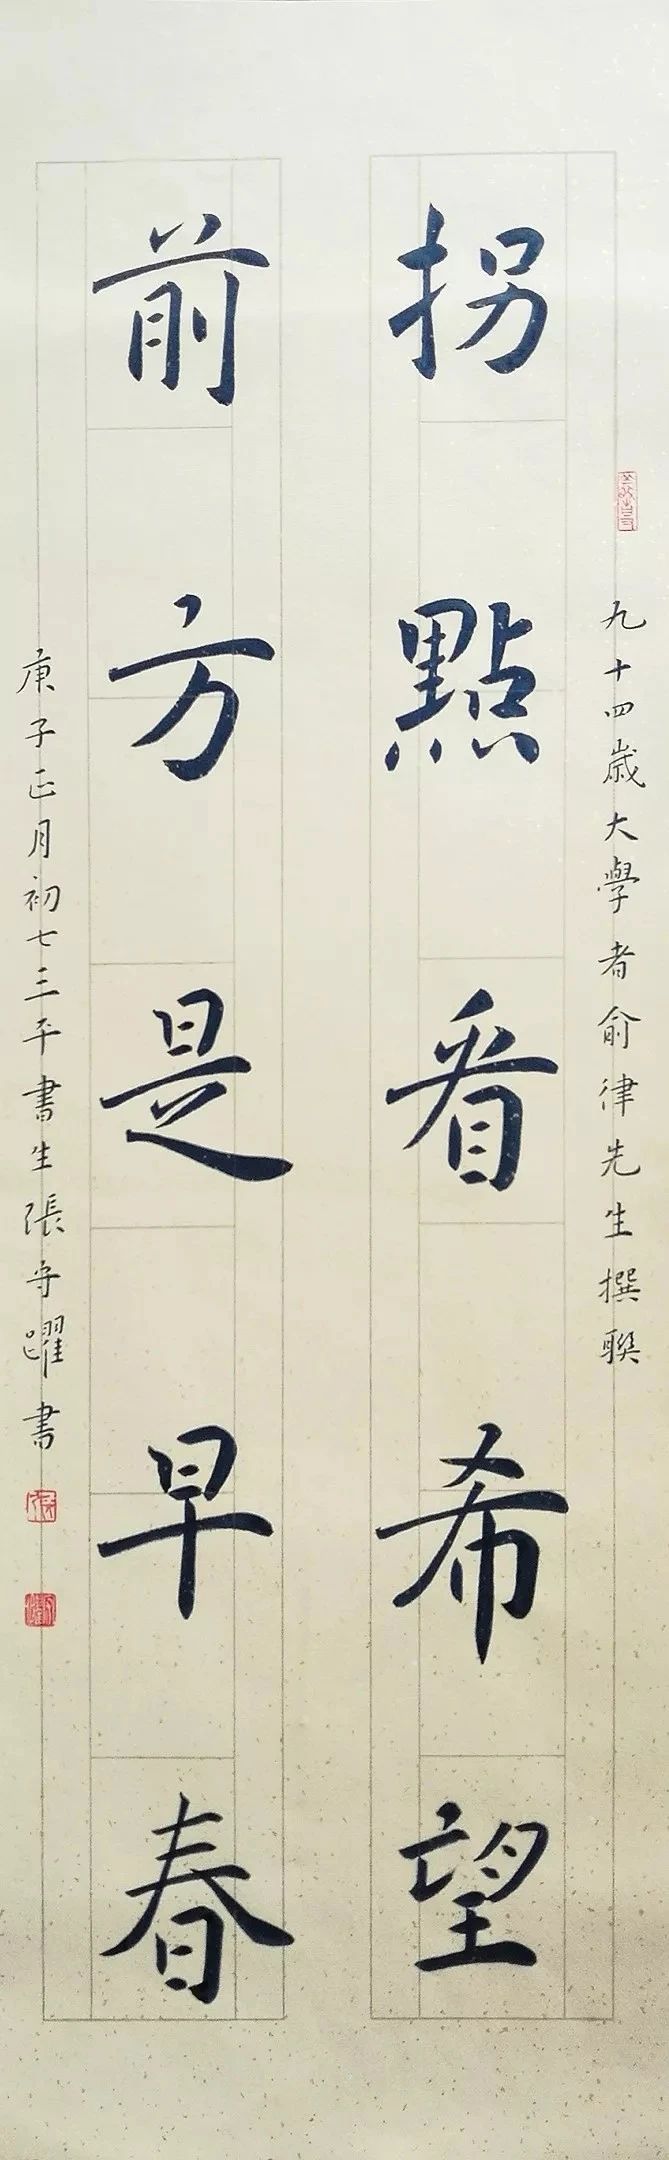 九十四歲大學者俞律先生撰聯
拐點看希望
前方是早春
庚子正月初七三平書生張守躍書